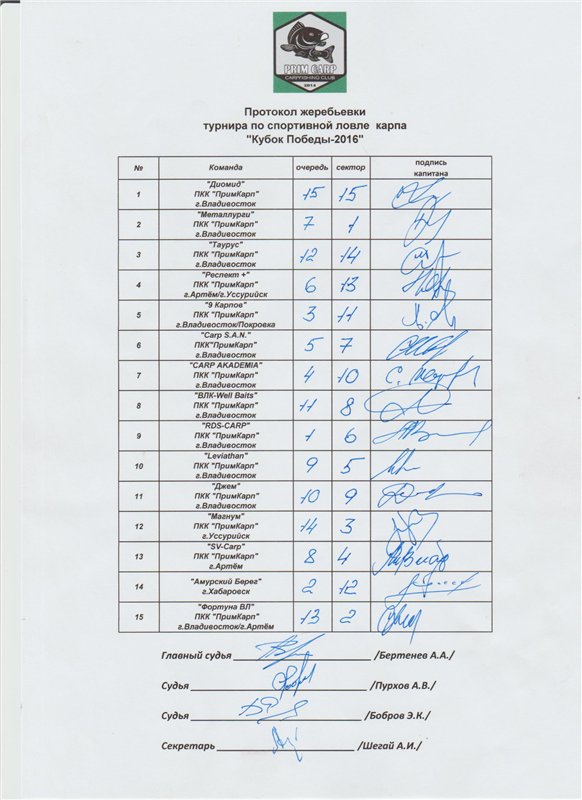 PRIM CARP
CARPFISHING CLUB
2014
Протокол жеребьевки
турнира по спортивной ловле карпа
"Кубок Победы-2016"
№ Команда очередь сектор подпись капитана
1 "Диомид" ПКК "ПримКарп" г.Владивосток 15 15
2 "Металлурги" ПКК "ПримКарп" г.Владивосток 7 1
3 "Таурус" ПКК "ПримКарп" г.Владивосток 12 14
4 "Респект +" ПКК "ПримКарп" г.Артём/г.Уссурийск 6 13
5 "9 Карпов" ПКК "ПримКарп" г.Владивосток/Покровка 3 11
6 "Carp S.A.N." ПКК"ПримКарп" г.Владивосток 5 7
7 "CARP AKADEMIA" ПКК "ПримКарп" г.Владивосток 4 10
8 "ВЛК-Well Baits" ПКК "ПримКарп" г.Владивосток 11 8
9 "RDS-CARP" ПКК "ПримКарп" г.Владивосток 1 6
10 "Leviathan" ПКК "ПримКарп" г.Владивосток 9 5
11 "Джем" ПКК "ПримКарп" г.Владивосток 10 9
12 "Магнум" ПКК "ПримКарп" г.Уссурийск 14 3
13 "SV-Carp" ПКК "ПримКарп" г.Артём 8 4
14 "Амурский Берег" г.Хабаровск 2 12
15 "Фортуна ВЛ" ПКК "ПримКарп" г.Владивосток/г.Артём 13 2
Главный судья /Бертенев А.А./
Судья /Пурхов А.В./
Судья /Бобров Э.К./
Секретарь /Шегай А.И./